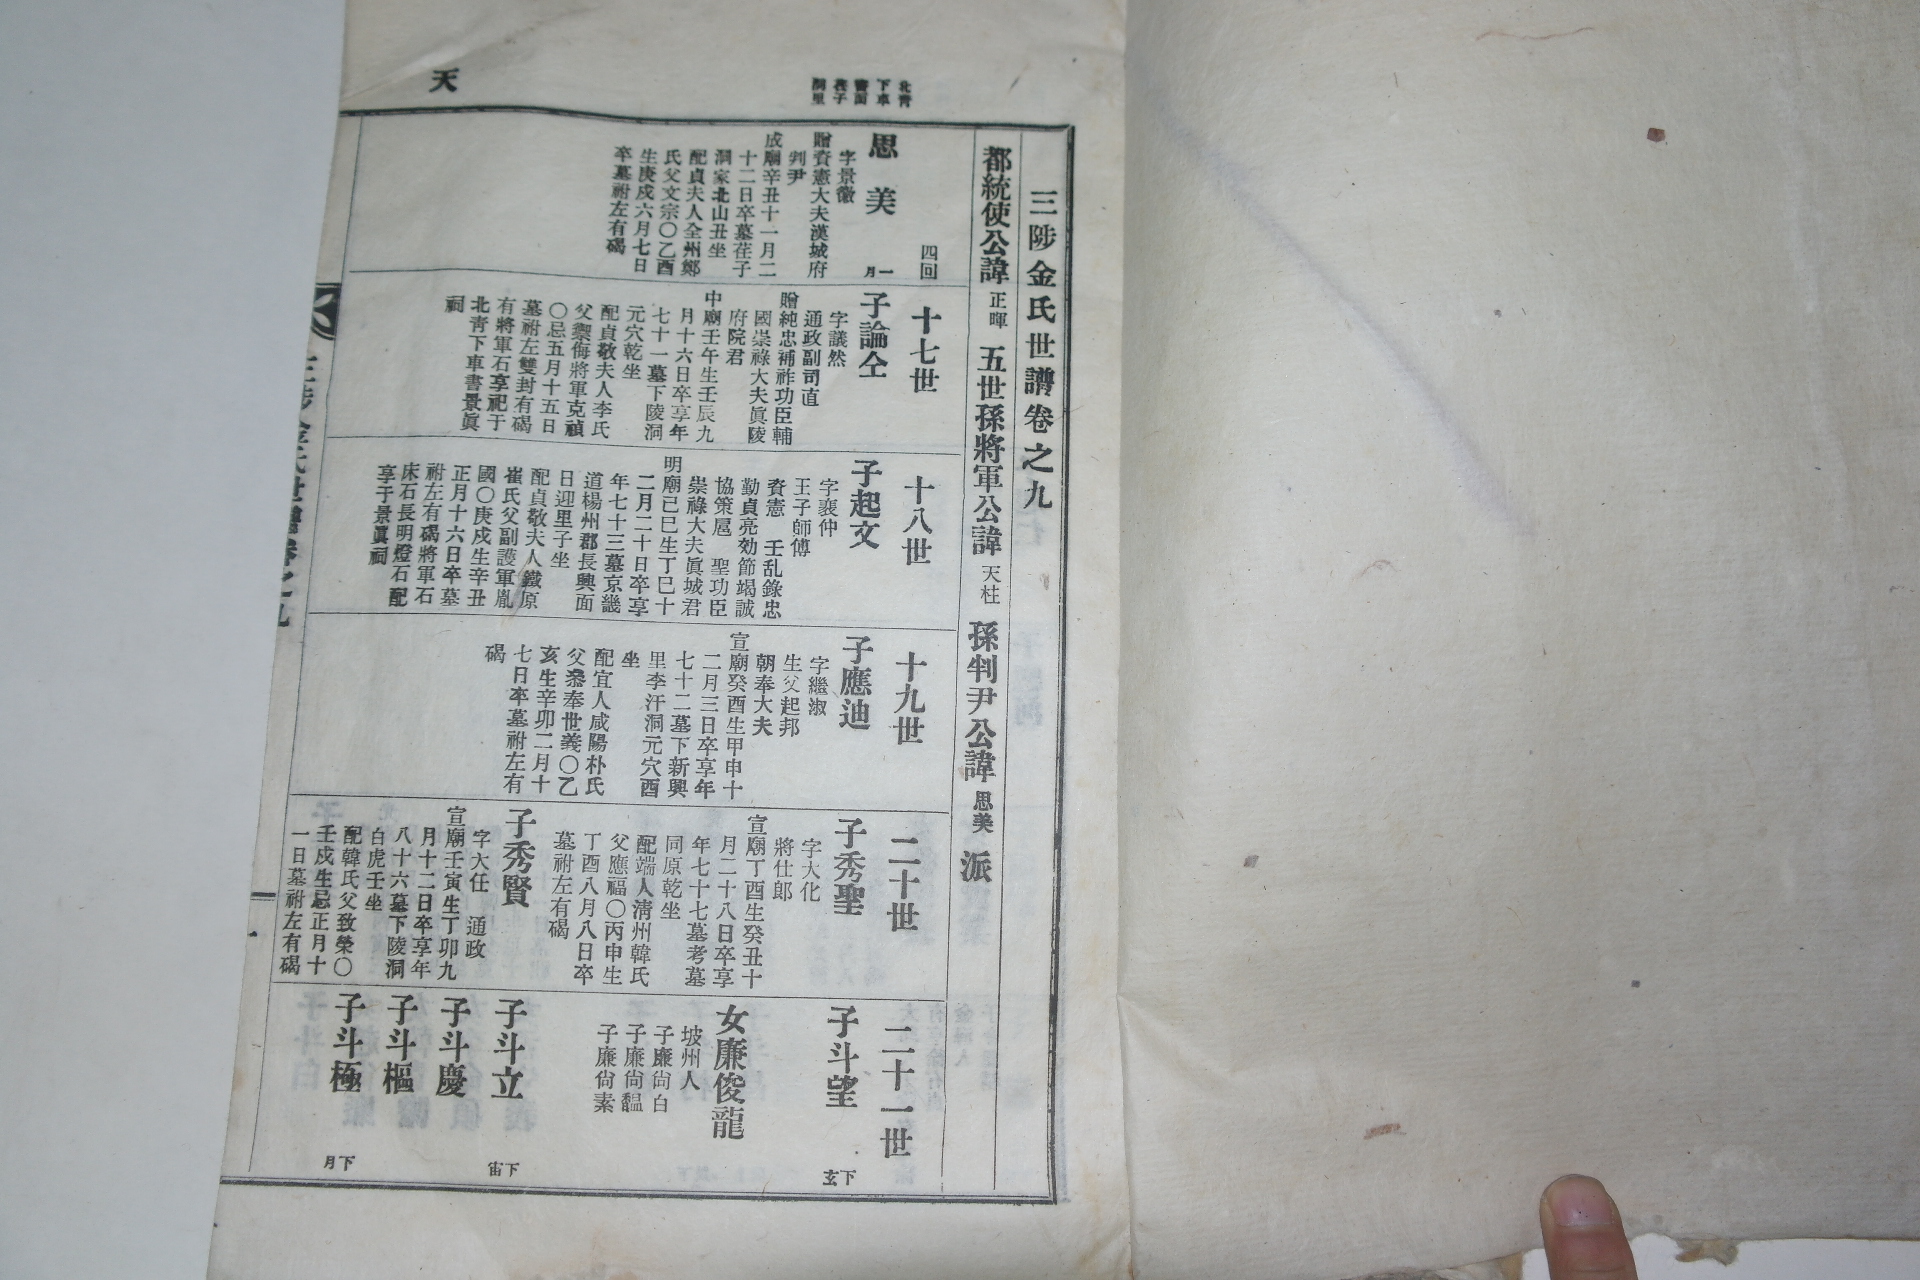 天
北靑
下車
書面
養子
洞里
三陟金氏世譜卷之九
都統使公諱正暉五世孫將軍公諱天柱孫判尹公諱思美派
四回
思美
一月
字景徽
贈資憲大夫漢城府
判尹
成廟辛丑十一月二
十二日卒墓荏子
洞家北山丑坐
配貞夫人全州鄭
氏父文宗〇乙酉
生庚戌六月七日
卒墓祔左有碣
十七世
子論仝
字議然
通政副司直
贈純忠補祚功臣輔
國崇祿大夫眞陵
府院君
中廟壬午生壬辰九
月十六日卒享年
七十一墓下陵洞
元穴乾坐
配貞敬夫人李氏
父禦侮將軍克禎
〇忌五月十五日
墓祔左雙封有碣
有將軍石享祀于
北靑下車書景眞
祠
十八世
子起文
字襄仲
王子師傅
資憲 壬乱錄忠
勤貞亮効節竭誠
協策扈 聖功臣
崇祿大夫眞城君
明廟己巳生丁巳十
二月二十日卒享
年七十三墓京畿
道楊州郡長興面
日迎里子坐
配貞敬夫人鐵原
崔氏父副護軍胤
國〇庚戌生辛丑
正月十六日卒墓
祔左有碣將軍石
床石長明燈石配
享于景眞祠
十九世
子應迪
字繼淑
生父起邦
朝奉大夫
宣廟癸酉生甲申十
二月三日卒享年
七十二墓下新興
里李汗洞元穴酉
坐
配宜人咸陽朴氏
父叅奉世義〇乙
亥生辛卯二月十
七日卒墓祔左有
碣
二十世
子秀聖
字大化
將仕郎
宣廟丁酉生癸丑十
月二十八日卒享
年七十七墓考墓
同原乾坐
配端人淸州韓氏
父應福〇丙申生
丁酉八月八日卒
墓祔左有碣
子秀賢
字大任 通政
宣廟壬寅生丁卯九
月十二日卒享年
八十六墓下陵洞
白虎壬坐
配韓氏父致榮〇
壬戌生忌正月十
一日墓祔左有碣
二十一世
子斗望
下玄
女廉俊龍
坡州人
子廉尙白
子廉尙馧
子廉尙素
子斗立
下宙
子斗慶
子斗樞
子斗極
下月
三陟金氏世譜卷之九
一